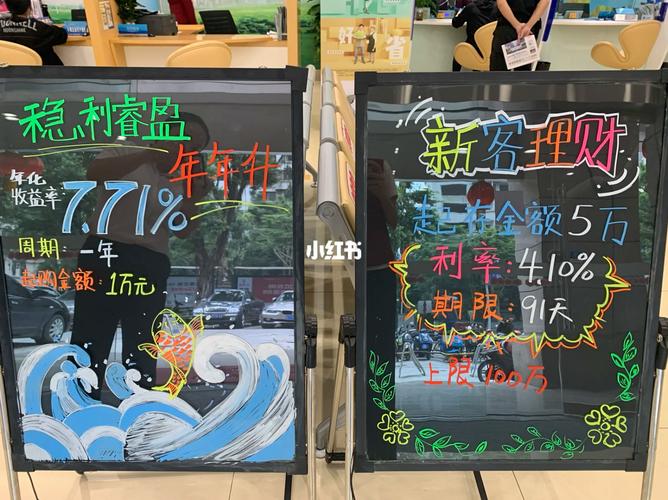 稳利睿盈
年年升
年化
收益率
7.71%
周期：一年
起购金额：1万元
小红书
好省
新客理财
起存金额5万
利率：4.10%
期限：91天
上限100万